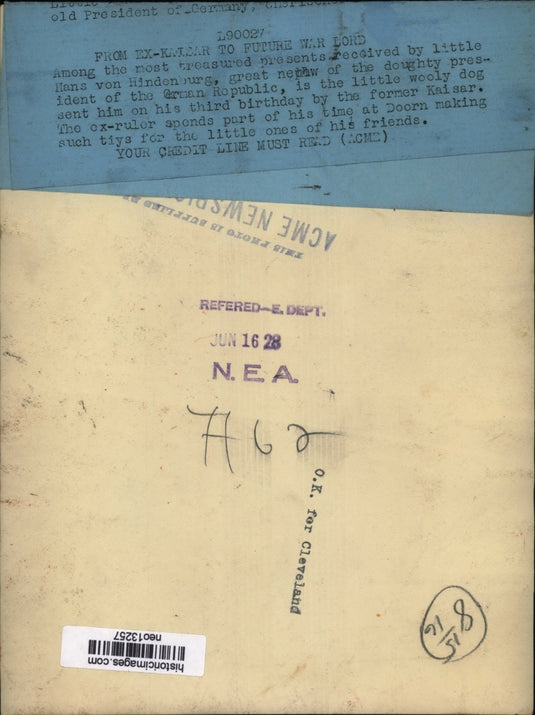 old President of Germany,
L90027
FROM EX-KAISAR TO FUTURE WAR LORD
Among the most treasured presents received by little
Hans von Hindenburg, great nephw of the doughty pres-
ident of the German Republic, is the little wooly dog
sent him on his third birthday by the former Kaisar.
The ex-ruler spends part of his time at Doorn making
such tiys for the little ones of his friends.
YOUR CREDIT LINE MUST READ (ACME)
THIS PHOTO IS SUPPLIED BY
ACME
REFERED-E. DEPT.
JUN 16 28
N. E. A.
H62
O.K. for Cleveland
8
15/16
historicimages.com
neo13257